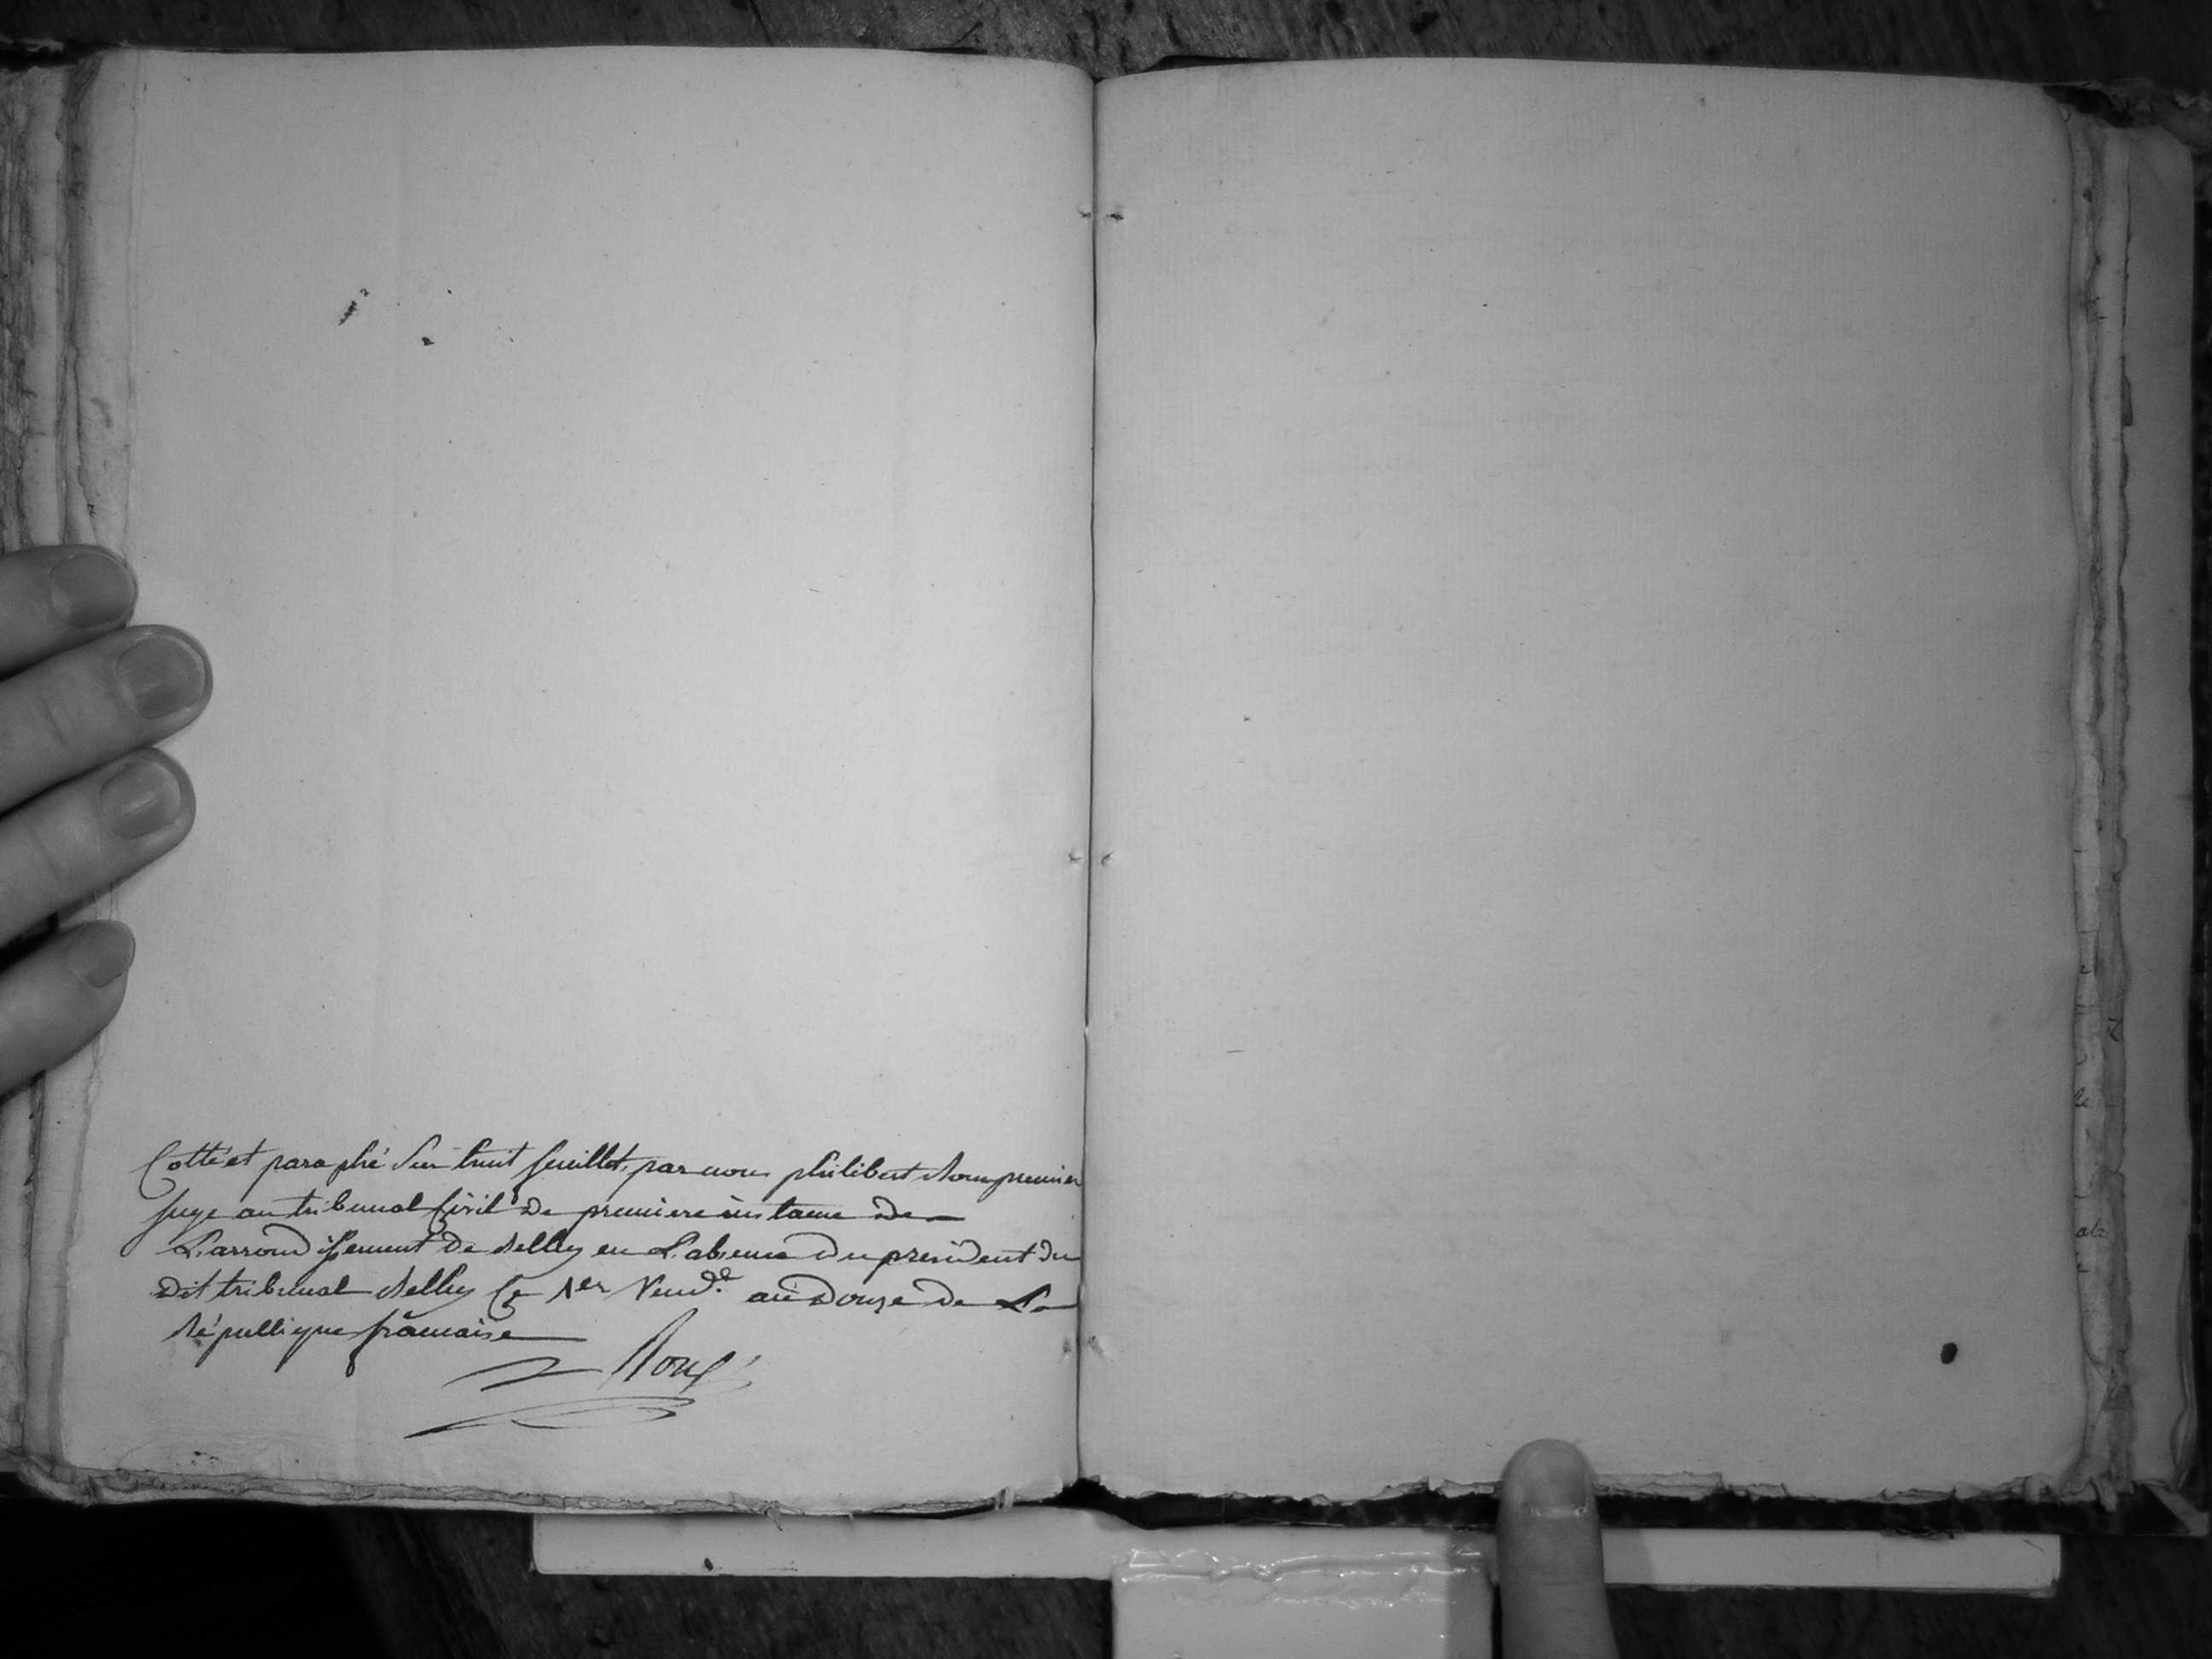 Cotté et paraphé sur huit feuillets, par nous philibert Roux premier
juge au tribunal Civil de premiere instance de
L'arrondissement de Belley en L'absence du president du
dit tribunal Belley Ce 1er Vend.e an douze de La
République française
Roux